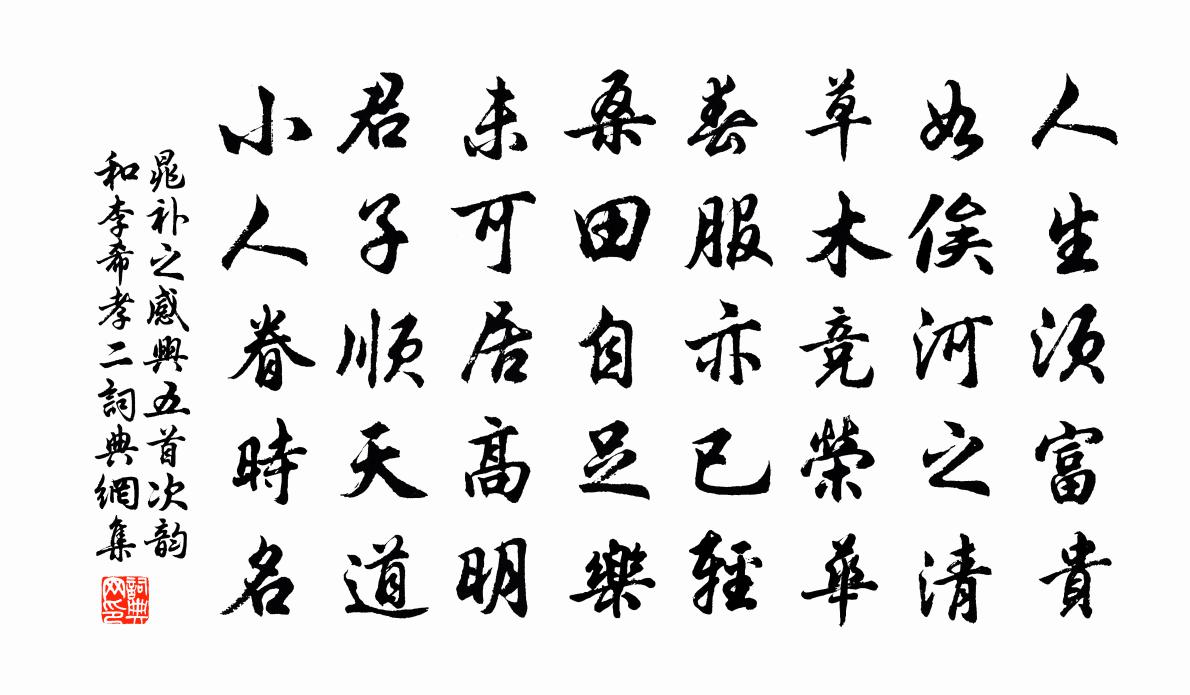 人生須富貴
如俟河之清
草木競榮華
春服亦已輕
桑田自足樂
未可居高明
君子順天道
小人眷時名
晁补之感興五首次韵
和李希孝二詞典網集
詞典
网印